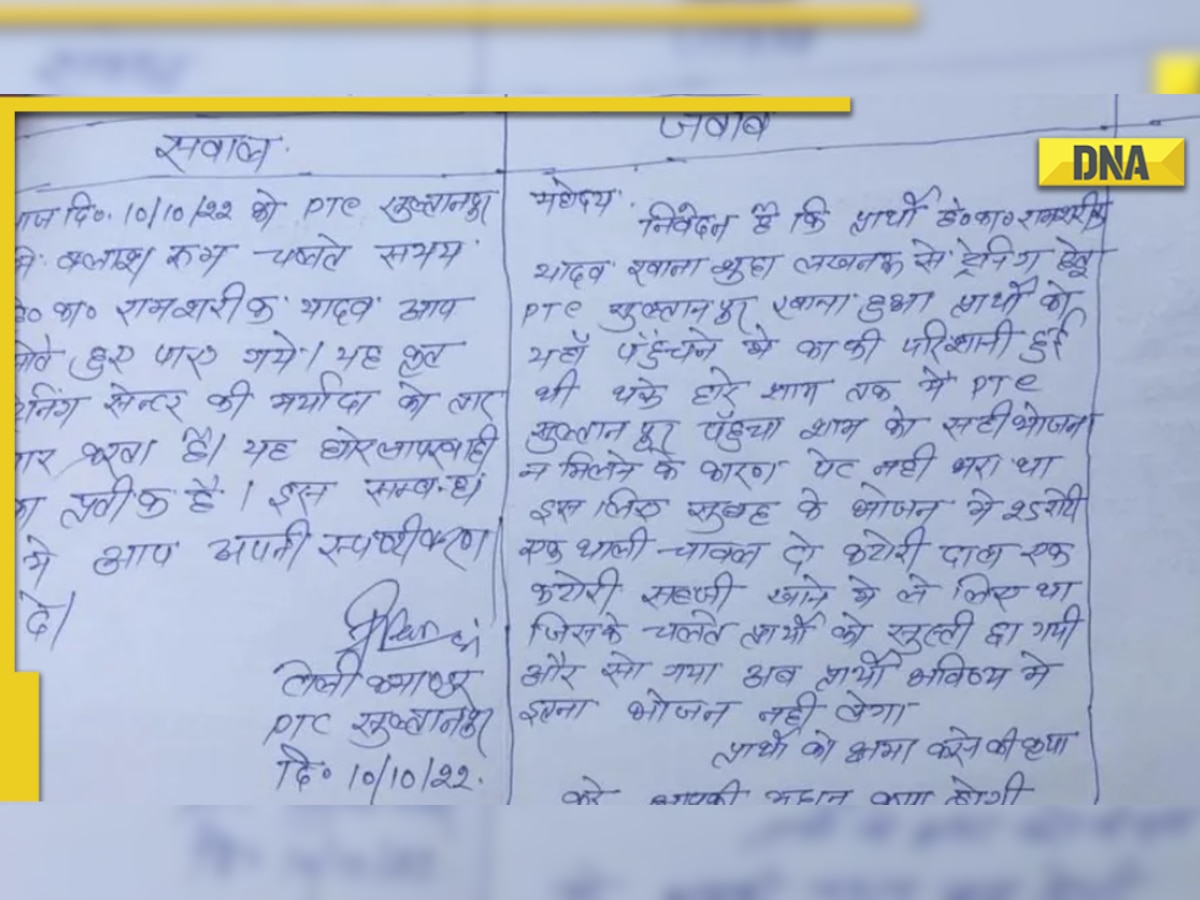 सवाल
आज दि०. 10/10/22 को PTC सुल्तानपुर
में क्लाश रूम चलते समय
हे० का० रामशरीक यादव आप
सोते हुए पाए गये। यह कृत
ट्रेनिंग सेन्टर की मर्यादा को तार
तार करता है। यह घोर लापरवाही
का प्रतीक है। इस सम्बन्ध
मे आप अपनी स्पष्टीकरण
दे।
टोली कमाण्डर
PTC सुल्तानपुर
दि० 10/10/22.
जबाब
महोदय
निवेदन है कि प्रार्थी हे० का० रामशरीक
यादव रवाना शुदा लखनऊ से ट्रेनिग हेतू
PTC सुल्तानपुर रवाना हुआ प्रार्थी को
यहाँ पहुंचने मे काफी परिशानी हुई
थी थके हारे शाम तक मै PTC
सुल्तानपुर पहुँचा शाम को सही भोजन
न मिलने के कारण पेट नही भरा था
इस लिए सुबह के भोजन मे 25 रोटी
एक थाली चावल दो कटोरी दाल एक
कटोरी सब्जी खाने मे ले लिए था
जिसके चलते प्रार्थी को सुस्ती छा गयी
और सो गया अब प्रार्थी भविष्य मे
इतना भोजन नही लेगा
प्रार्थी को क्षमा करने की कृपा
करे आपकी महान कृपा होगी
DNA